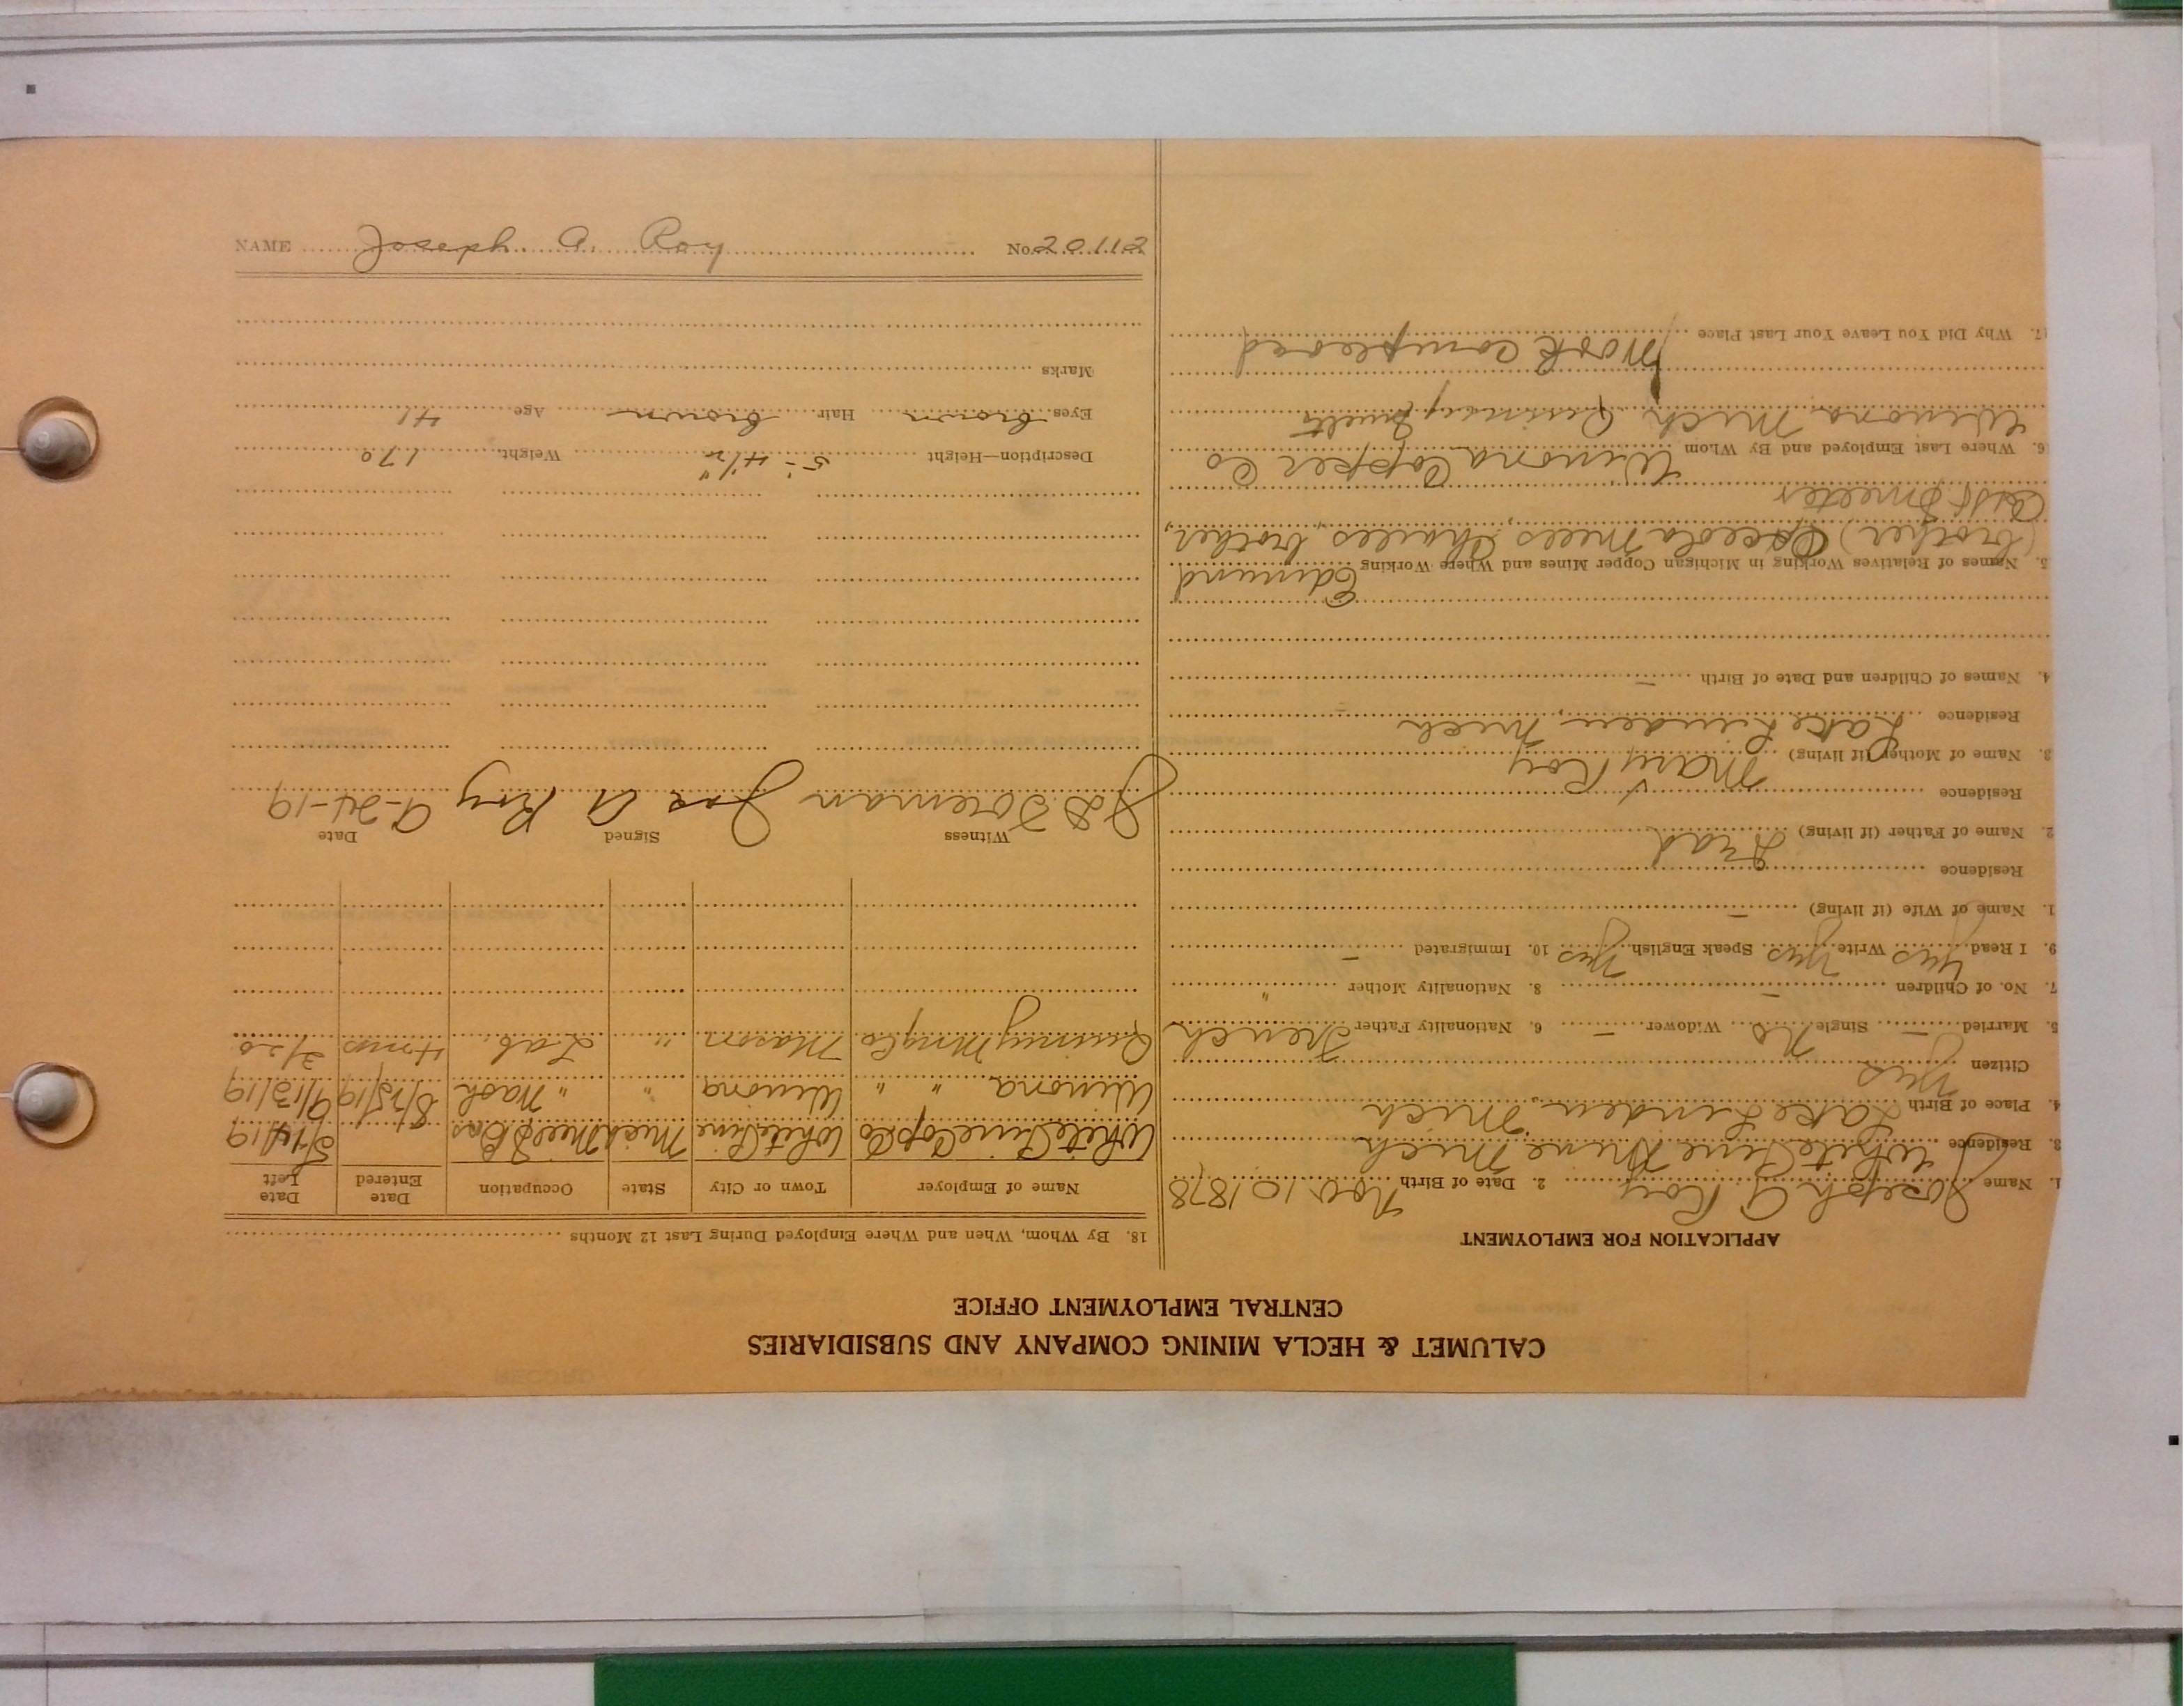 CALUMET & HECLA MINING COMPANY AND SUBSIDIARIES
CENTRAL EMPLOYMENT OFFICE
APPLICATION FOR EMPLOYMENT
1. Name Joseph A Roy 2. Date of Birth Nov. 10 1878
3. Residence White Pine Mine Mich
4. Place of Birth Lake Linden, Mich
Citizen Yes
5. Married – Single No Widower – 6. Nationality Father French
7. No. of Children – 8. Nationality Mother "
9. I Read Yes Write Yes Speak English Yes 10. Immigrated –
1. Name of Wife (if living) –
Residence
2. Name of Father (if living) Dead
Residence
3. Name of Mother (if living) Mary Roy
Residence Lake Linden, Mich
4. Names of Children and Date of Birth –
5. Names of Relatives Working in Michigan Copper Mines and Where Working Edmund
(brother) Osceola Mills Charles, brother,
Smelter
6. Where Last Employed and By Whom Winona Copper Co
Winona Mich Quincy Smelt
17. Why Did You Leave Your Last Place Work completed
18. By Whom, When and Where Employed During Last 12 Months
Name of Employer Town or City State Occupation Date Entered Date Left
White Pine Cop Co White Pine Mich Mill Bos 5/14/19
Winona " " Winona " " Wash 8/15/19 9/13/19
Quincy Mng Co Mason " Lab. 4 mos 2/20
Witness Signed Date
J D Foreman Jos A Roy 9-24-19
Description—Height 5-4 1/2" Weight 170
Eyes brown Hair brown Age 41
Marks
NAME Joseph A. Roy No. 20112